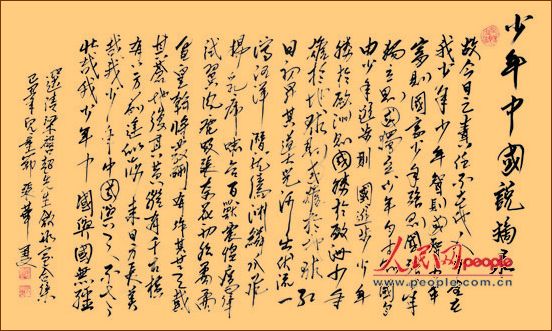 少年中國說摘录
故今日之責任不在他人而全在
我少年少年智則國智少年
富則國富少年强則國强少年
獨立則國獨立少年自由則國自
由少年進步則國進步少年
勝於歐洲則國勝於歐洲少年
雄於地球則國雄於地球紅
日初升其道大光河出伏流一
瀉汪洋潛龍騰淵鱗爪飛
揚乳虎嘯谷百獸震惶鷹隼
試翼風塵吸張奇花初胎矞矞
皇皇幹將發硎有作其芒天戴
其蒼地履其黃縱有千古橫
有八荒前途似海來日方長美
哉我少年中國與天不老
壯哉我少年中國與國無疆
選清梁啟超先生飲冰室合集
年兒童節
人民网 people
www.people.com.cn